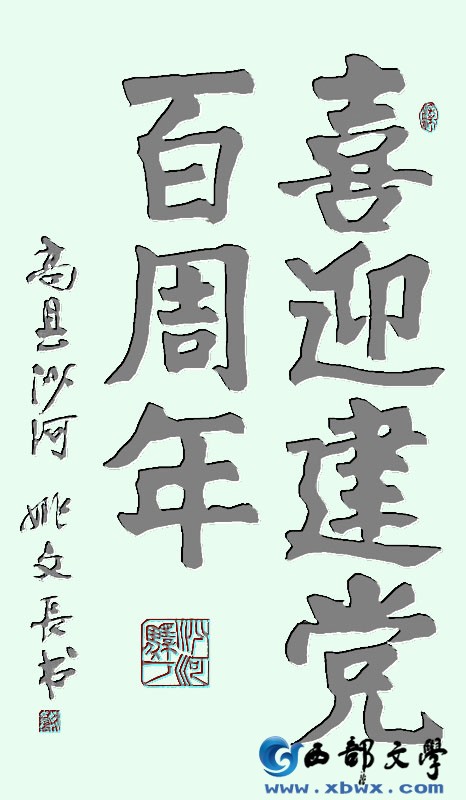 喜迎建党
百周年
高县沙河 姚文長书
西部文學
www.xbwx.com